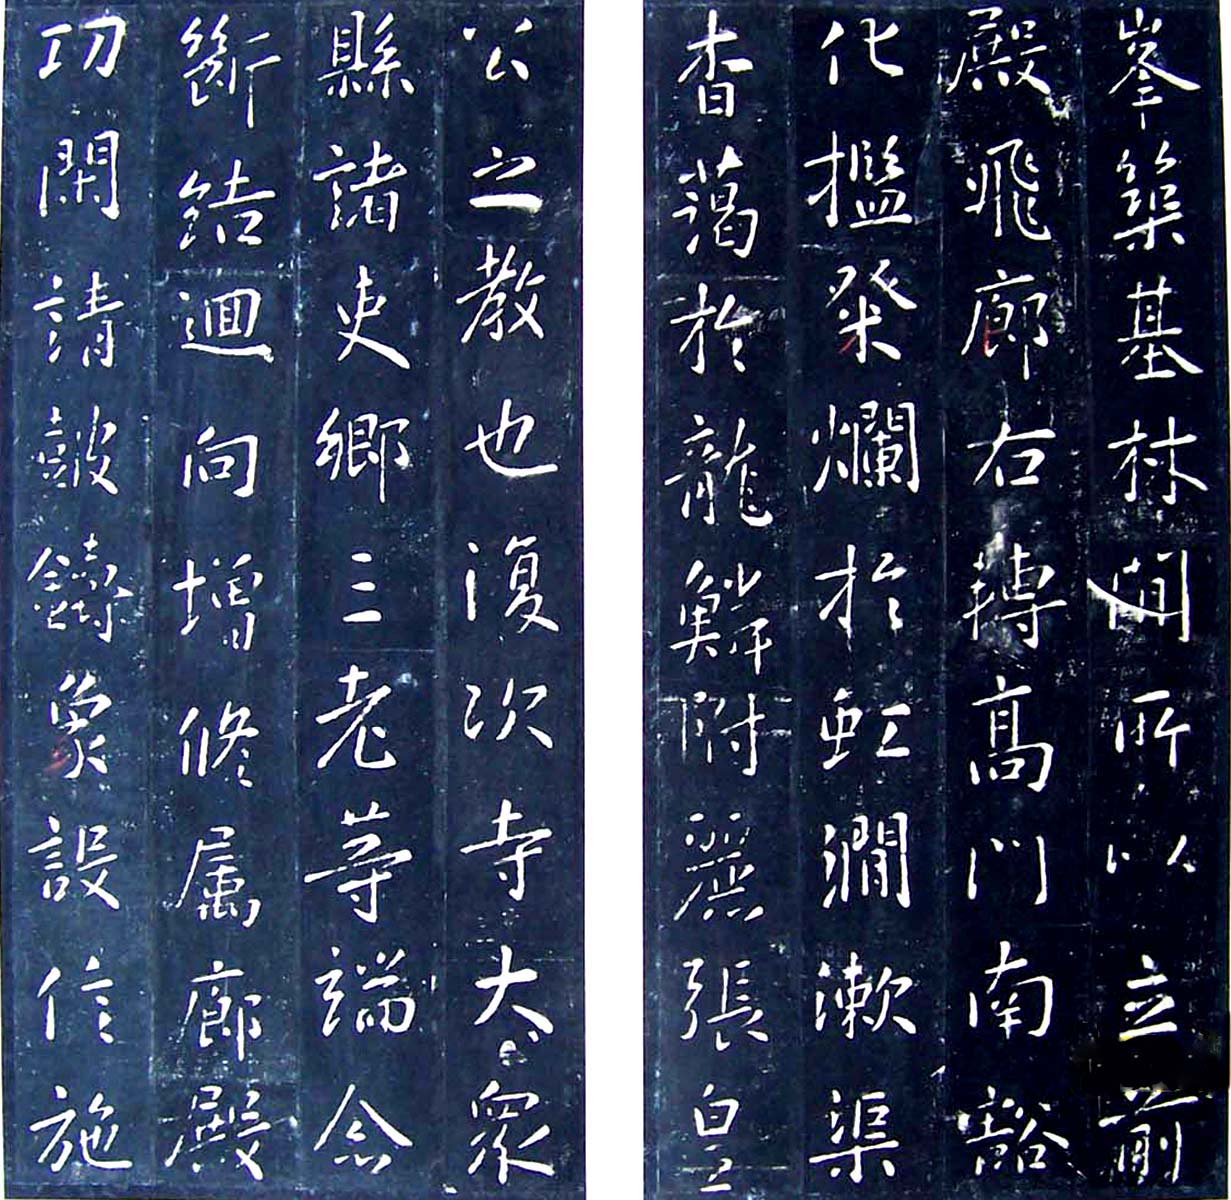 峯築基林間所以立前
殿飛廊右轉高門南豁
化檻發爛於虹澗漱渠
杳藹於龍鮮附麗張皇
公之教也復次寺大眾
縣諸吏鄉三老等端念
斷結迴向增修属廊殿
功閑請鼓鑄象設信施